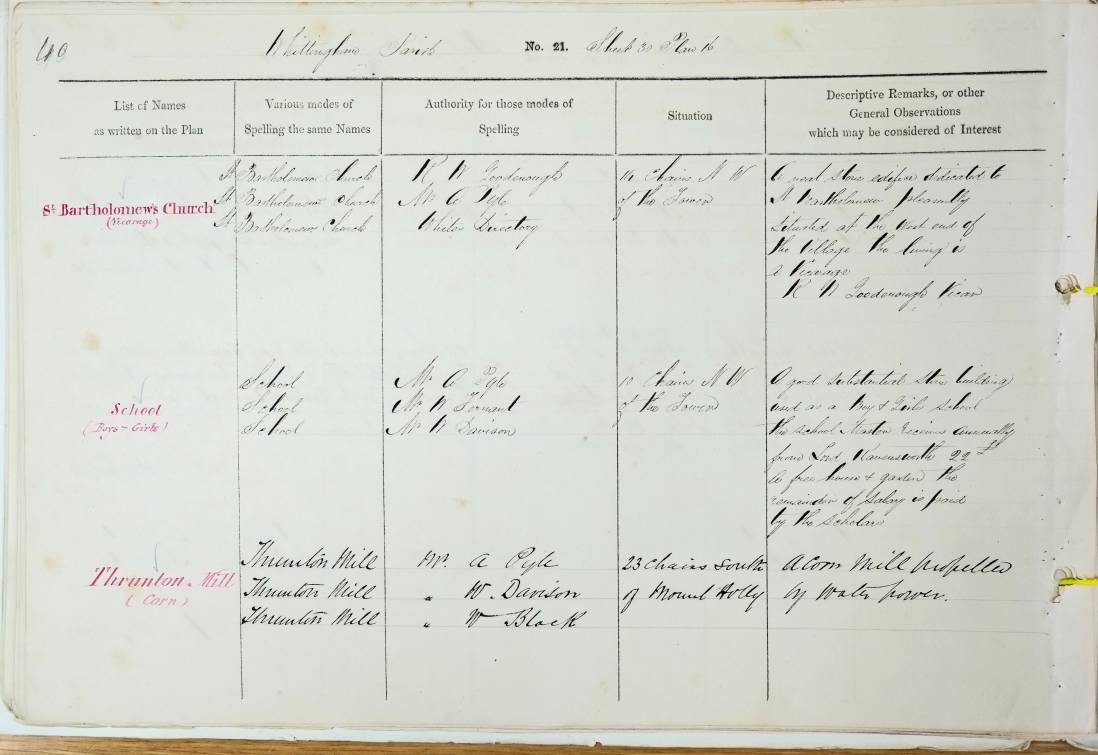 49
Whittingham Parish No. 21. Sheet 30 Plan 16
List of Names
as written on the Plan
Various modes of
Spelling the same Names
Authority for those modes of
Spelling
Situation
Descriptive Remarks, or other
General Observations
which may be considered of Interest
St. Bartholomew's Church
(Vicarage)
St Bartholomews Church
St Bartholomews Church
St Bartholomews Church
R W Goodenough
Mr A Pyle
Whites Directory
Chains N W
of the Tower
A neat stone edifice dedicated to
St Bartholomew pleasantly
situated at the West end of
the Village the living is
a Vicarage
R W Goodenough Vicar
School
(Boys & Girls)
School
School
School
Mr A Pyle
Mr W
Mr W Davison
10 Chains N W
of the Tower
A good substantial stone building
used as a Boy & Girls School
the school Master receives annually
from Lord Ravensworth 22£
a free house & garden the
remainder of salary is paid
by the scholars
Thrunton Mill
(Corn)
Thrunton Mill
Thrunton Mill
Thrunton Mill
Mr. A Pyle
" W. Davison
" W Black
23 chains South
of Mount Holly
A Corn Mill propelled
by Water power.